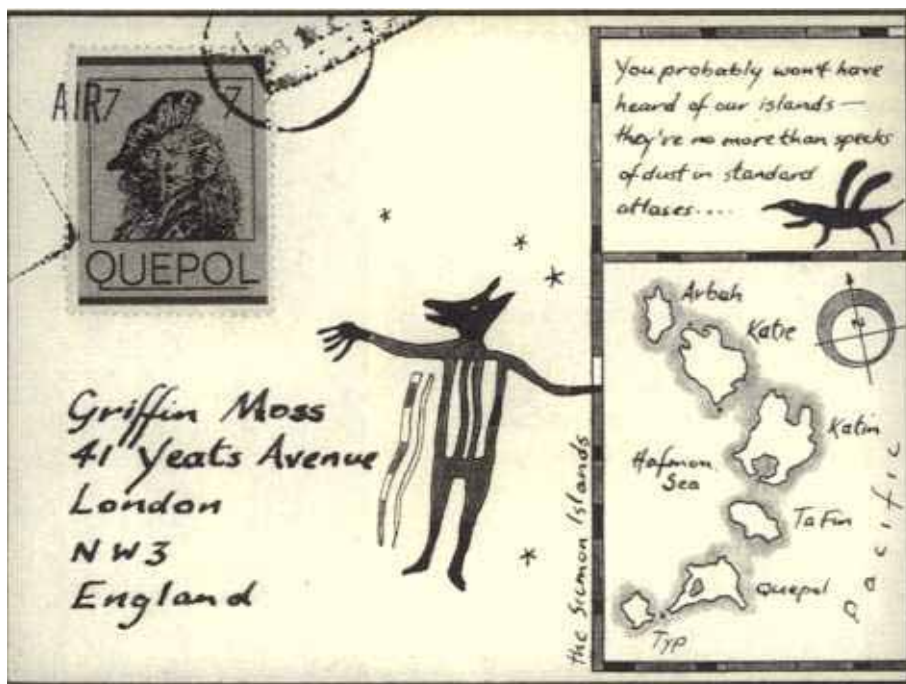 AIR
7 7
QUEPOL
Griffin Moss
41 Yeats Avenue
London
NW3
England
You probably won't have
heard of our islands —
they're no more than specks
of dust in standard
atlases....
the Sicmon Islands
Arbah
Katie
Katin
Hafmon
Sea
Ta Fin
Quepol
Typ
Pacific
N